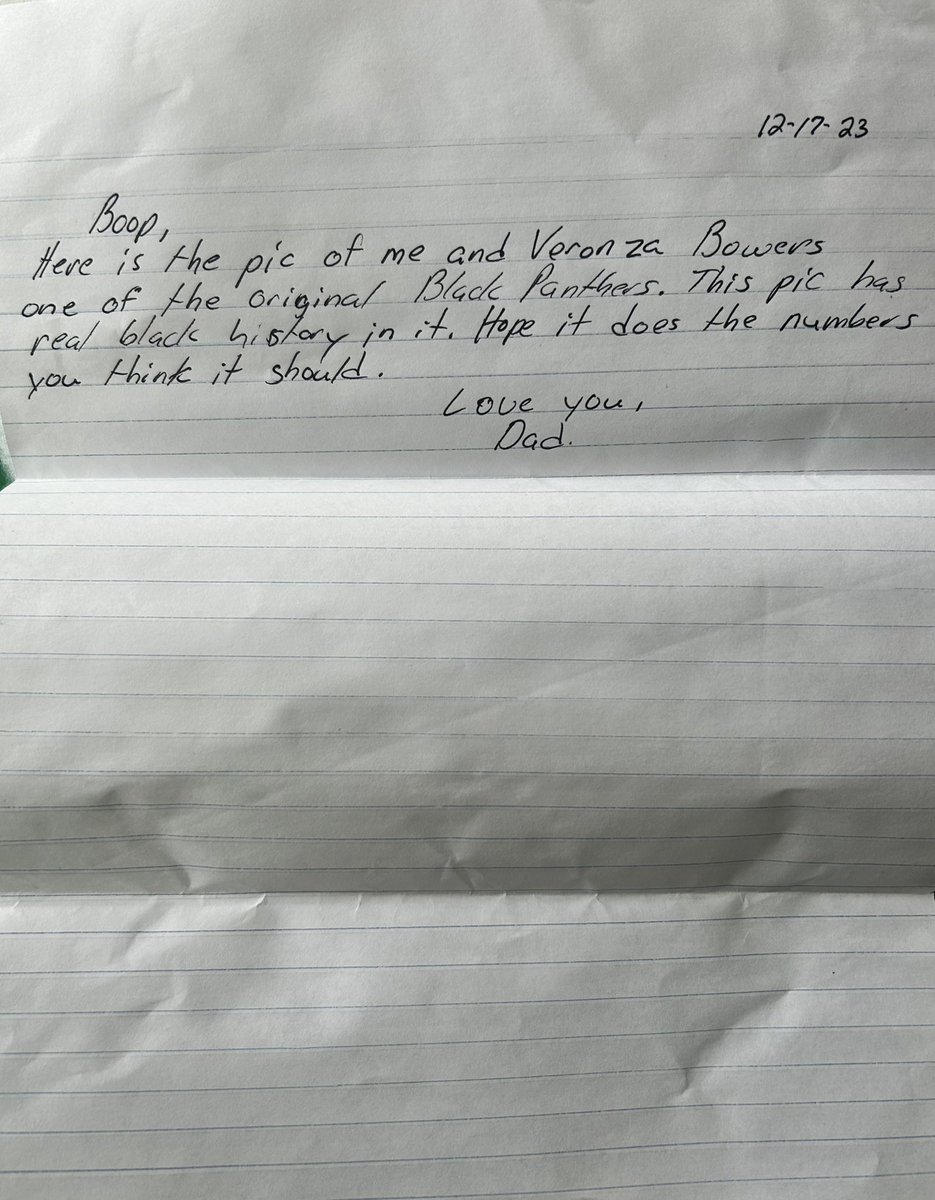 12-17-23
Boop,
Here is the pic of me and Veronza Bowers
one of the original Black Panthers. This pic has
real black history in it. Hope it does the numbers
you think it should.
Love you,
Dad.